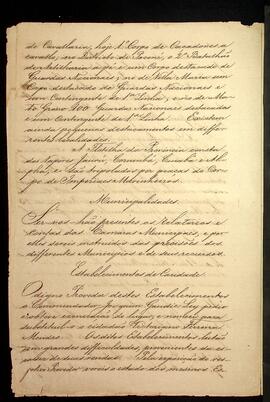 de Cavallaria, hoje 1º Corpo de Caçadores a
cavallo, no Districto de Poconé, o 2º Batalhão
de Artilharia a pé e um Corpo destacado de
Guardas Nacionaes; no de Villa Maria um
Corpo destacado de Guardas Nacionaes e
um Contingente de 1ª Linha; e no de Ma-
to Grosso 100 Guardas Nacionaes destacados
e um Contingente de 1ª Linha. Existem
ainda pequenos destacamentos em diffe-
rentes localidades.
A Flotilha da Provincia consta
dos Vapores Jaurú, Corumbá, Cuiabá e Al-
pha, e são tripolados por praças do Cor-
po de Imperiaes Marinheiros.
Municipalidades
Ser-vos-hão presentes os relatorios e
contas das Camaras Municipaes, e por
elles sereis instruidos das precisões dos
differentes Municipios e de seus recursos.
Estabelecimentos de Caridade
O digno Provedor destes Estabelecimentos
o Commendador
obteve exoneração do lugar, e nomeei para
substituil-o o cidadão Pereira
Mendes. Os ditos Estabelecimentos lutão
com grandes difficuldades, provenientes da es-
cassez de suas rendas. Pela exposição do res-